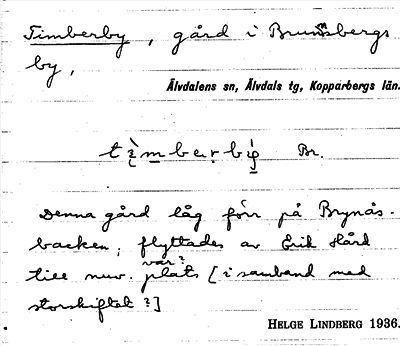 Timberby, gård i Brunnsbergs
by,
Älvdalens sn, Älvdals tg, Kopparbergs län.
Br.
Denna gård låg förr på Brynäs-
backen; flyttades av Erik Hård
var?
till nuv. plats [i samband med
storskiftet?]
HELGE LINDBERG 1936.